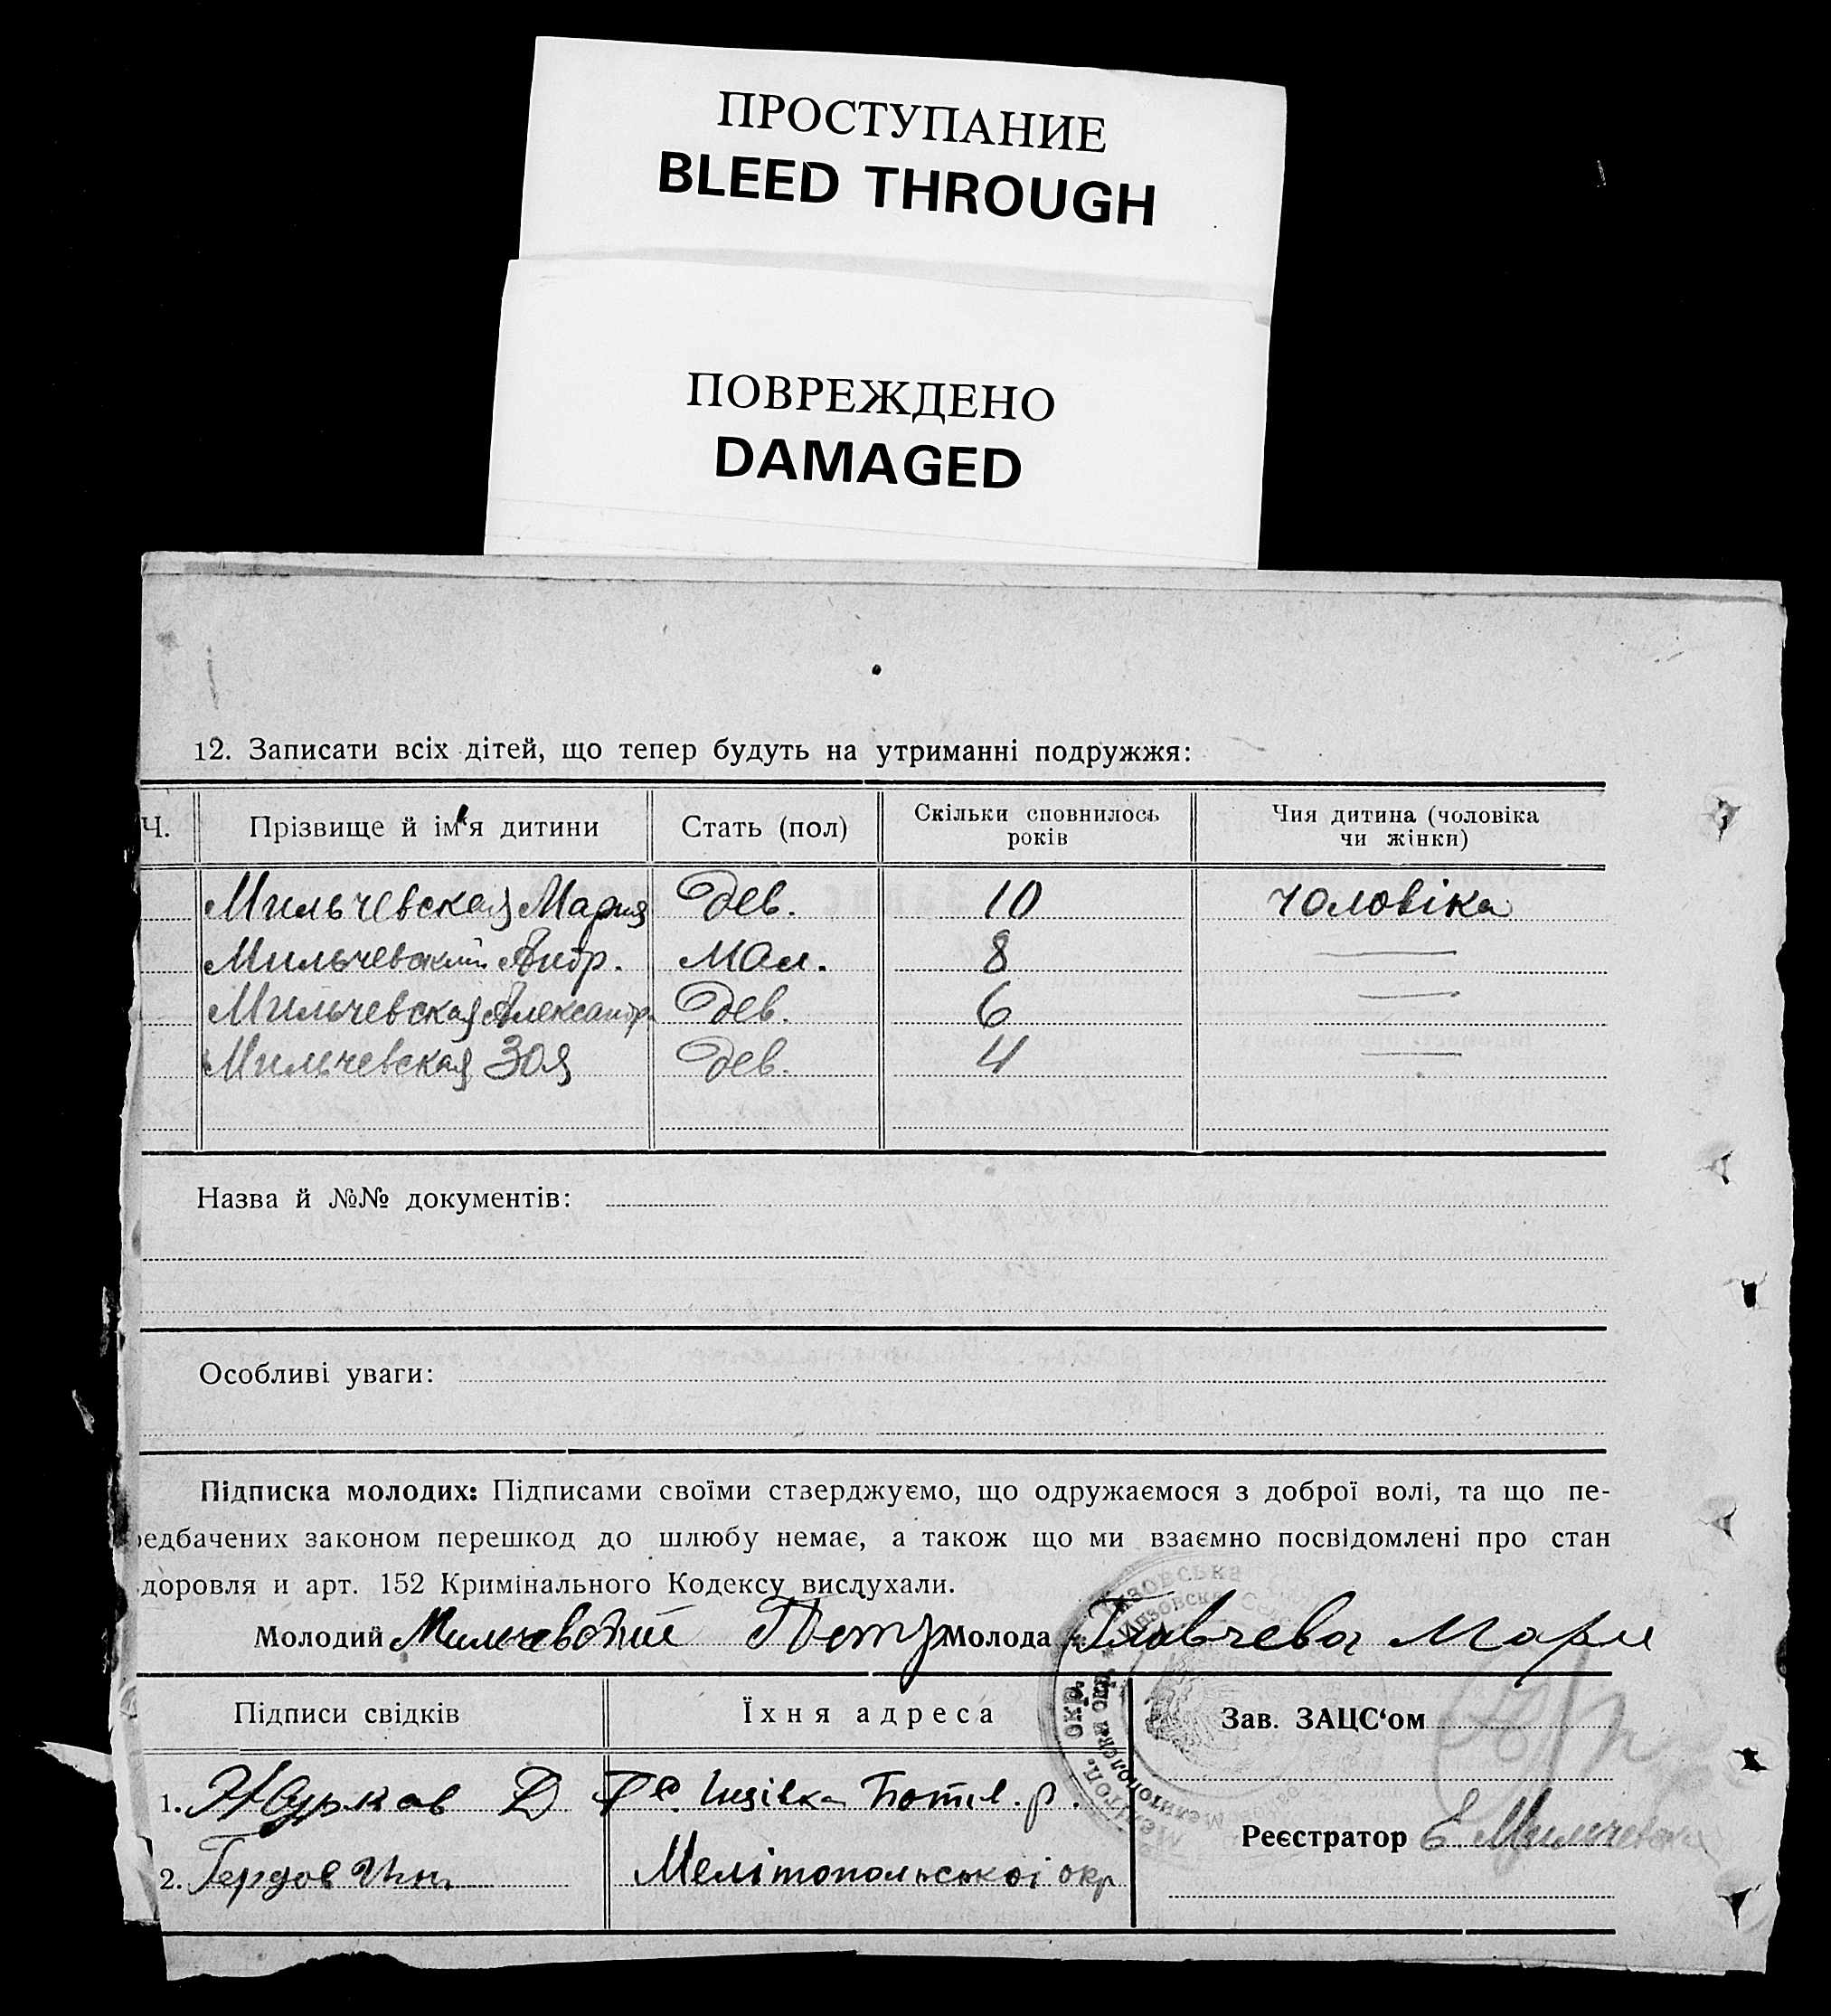 ПРОСТУПАНИЕ
BLEED THROUGH
ПОВРЕЖДЕНО
DAMAGED
12. Записати всіх дітей, що тепер будуть на утриманні подружжя:
Ч. Прізвище й ім'я дитини Стать (пол) Скільки сповнилось років Чия дитина (чоловіка чи жінки)
Мильчевская Мария Дев. 10 чоловіка
Мильчевский Андр. Мал. 8 —
Мильчевская Александр Дев. 6 —
Мильчевская Зоя Дев. 4 —
Назва й №№ документів:
Особливі уваги:
Підписка молодих: Підписами своїми стверджуємо, що одружаємося з доброї волі, та що пе-
редбачених законом перешкод до шлюбу немає, а також що ми взаємно посвідомлені про стан
доровля и арт. 152 Кримінального Кодексу вислухали.
Молодий Милчевский Петр Молода Главчева Мари
Підписи свідків Їхня адреса Зав. ЗАЦС‘ом
1. Журков Д Ботіев. р.
Реєстратор Е Мильчевская
2. Гердов Мелітопольської окр